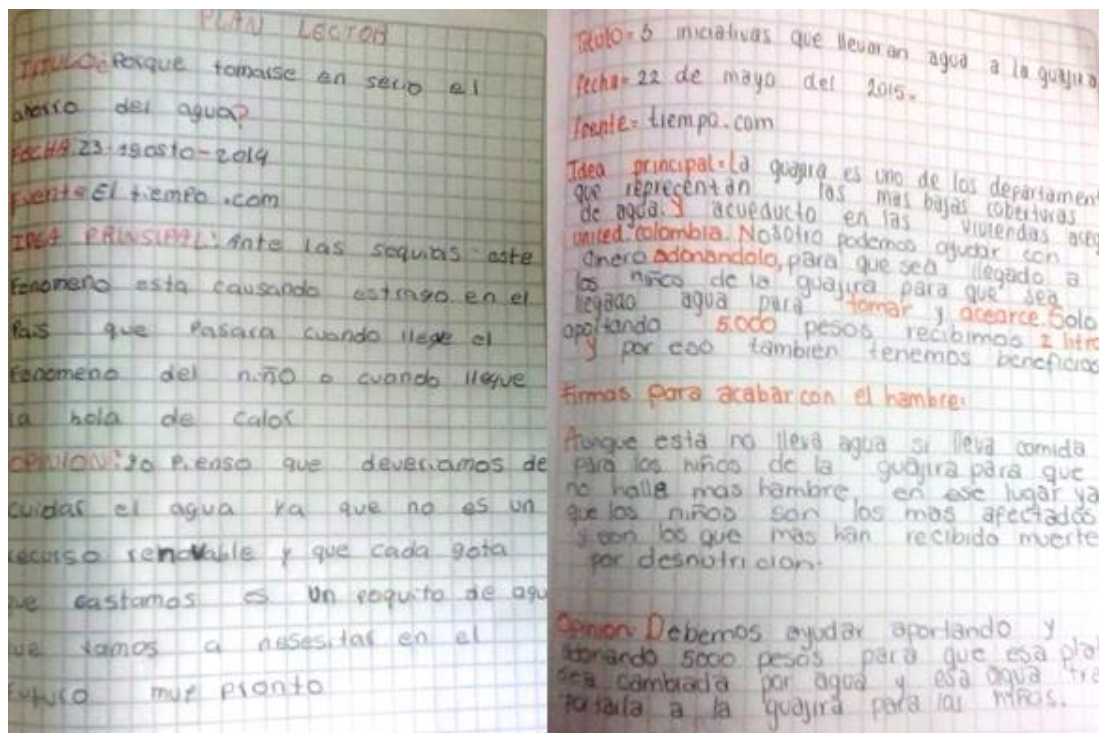 PLAN LECTOR
TITULO: Porque tomarse en serio el
ahorro del agua?
FECHA: 23-agosto-2014
Fuente El tiempo .com
IDEA PRINSIPAL: Ante las sequias este
fenomeno esta causando estrago en el
Pais que Pasara cuando llege el
fenomeno del niño o cuando lleque
la hola de calor
OPINION: yo Pienso que deveriamos de
cuidar el agua ya que no es un
recurso renovable y que cada gota
que gastamos es un poquito de agu
que vamos a nesesitar en el
futuro muy pronto
Titulo= 3 iniciativas que llevaran agua a la guajira
Fecha= 22 de mayo del 2015.
Fuente= tiempo.com
Idea principal= La guajira es uno de los departament
que reprecentan las mas bajas coberturas
de agua. y acueducto en las viviendas aseg
united colombia. Nosotro podemos ayudar con
dinero adonandolo, para que sea llegado a
los niños de la guajira para que sea
llegado agua para tomar y acearce. Solo
aportando 5.000 pesos recibimos 2 litro
y por eso tambien tenemos beneficios
Firmas para acabar con el hambre:
Aunque esta no lleva agua si lleva comida
para los niños de la guajira para que
no halla mas hambre, en ese lugar ya
que los niños son los mas afectados
y son los que mas han recibido muerte
por desnutricion.
Opinion: Debemos ayudar aportando y
donando 5000 pesos para que esa plat
sea cambiada por agua y esa agua tra
a la guajira para los niños.